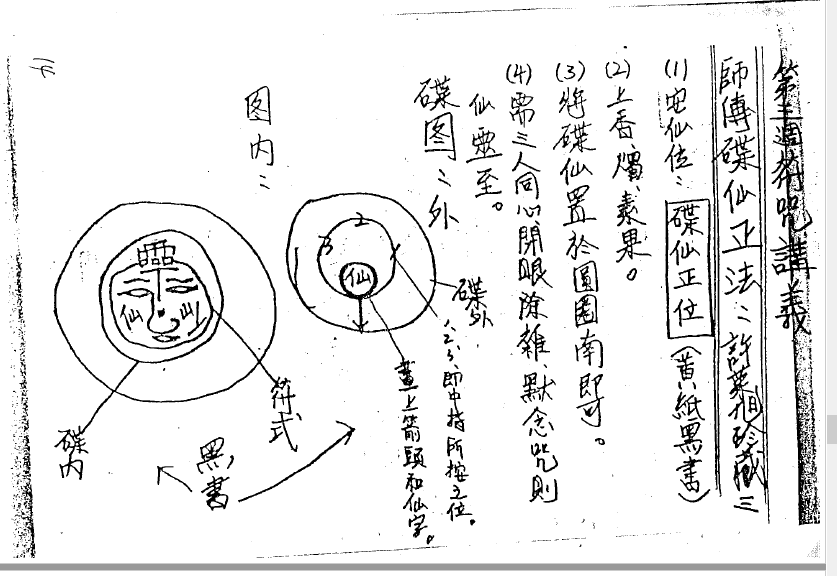 第三週符咒講義
師傅碟仙正法：許葉旭珍藏三
(1)安仙位：碟仙正位（黃紙黑書）
(2)上香、燭、素果。
(3)將碟仙置於圓圈南即可。
(4)需三人同心閉眼除雜、默念咒則
仙靈至。
碟图：外
碟外
1、2、3、即中指所按之位。
畫上箭頭和仙字。
1
2
3
仙
图内：
靈
仙
山
符式
碟内
黑書